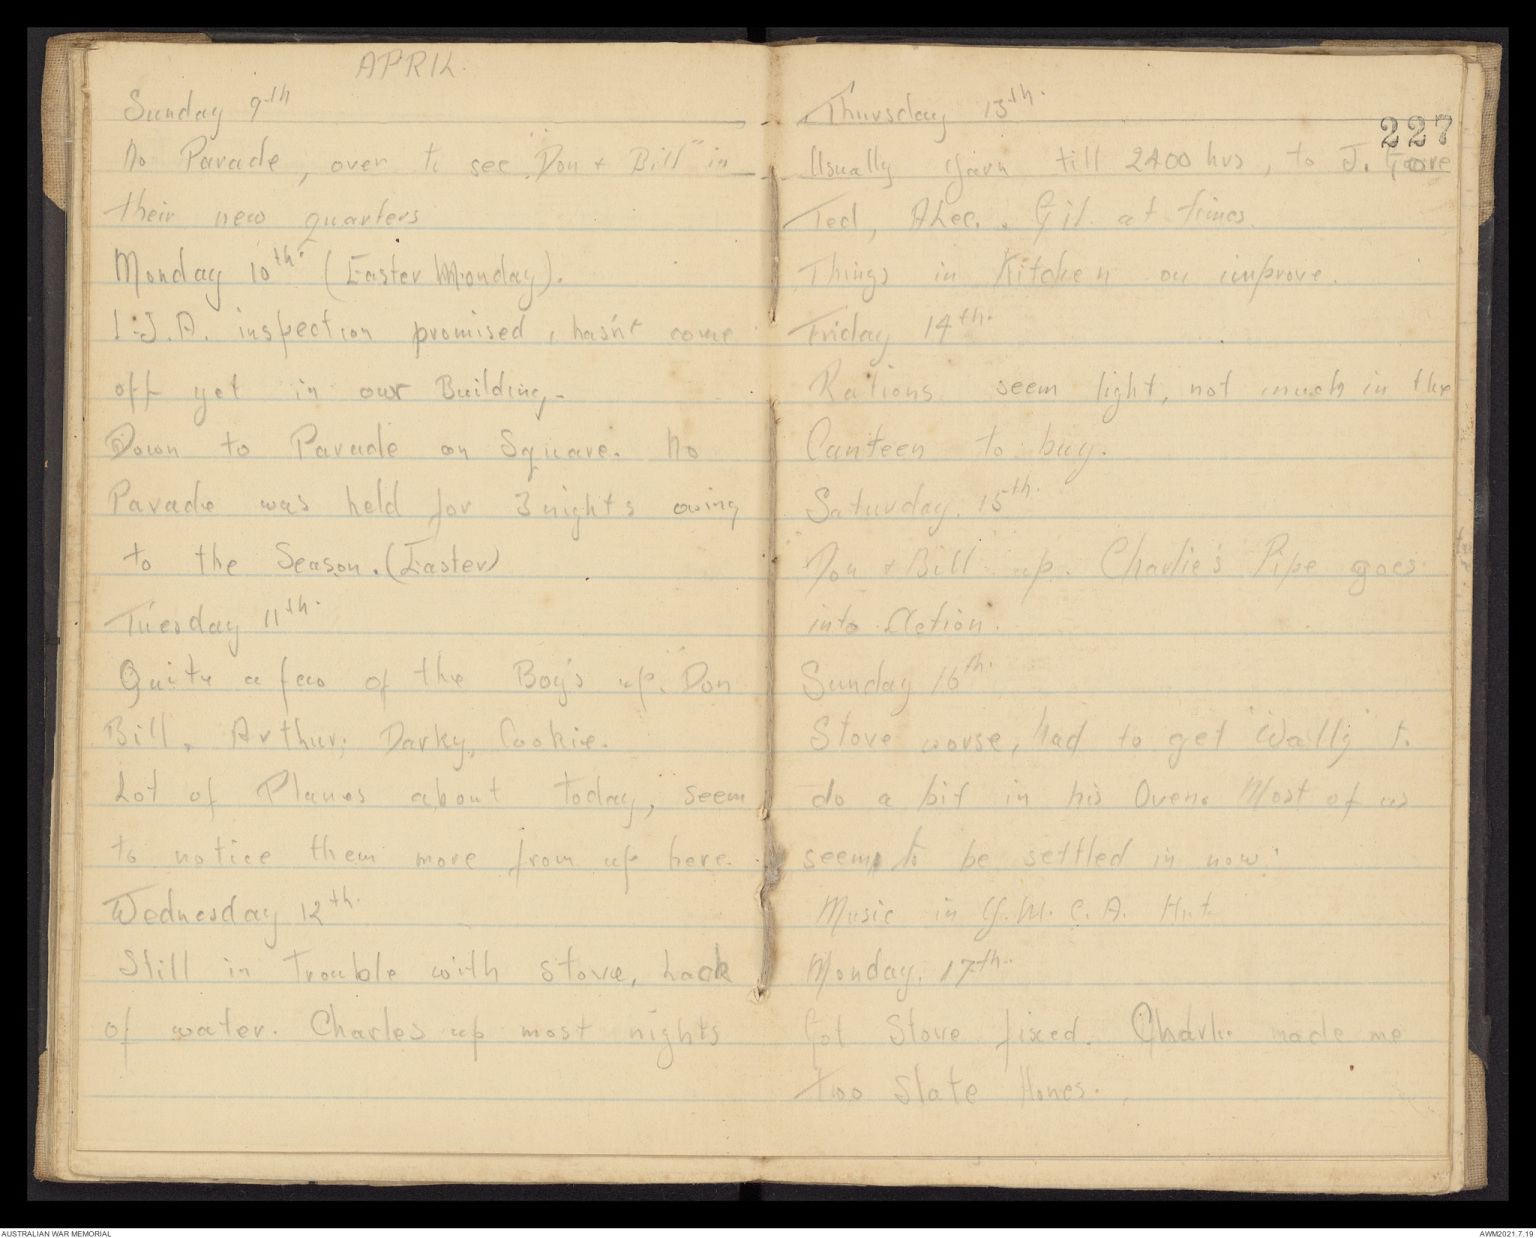 APRIL.
Sunday 9th
No Parade, over to see "Don & Bill" in
their new quarters
Monday 10th. (Easter Monday).
I.J.A. inspection promised, hasn't come
off yet in our Building,-
Down to Parade on Square. No
Parade was held for 3 nights owing
to the Season. (Easter)
Tuesday 11th.
Quite a few of the Boy's up. Don
Bill, Arthur, Darky, Cookie.
Lot of Planes about today, seem
to notice them more from up here.
Wednesday 12th.
Still in Trouble with stove, Lack
of water. Charles up most nights
Thursday 13th.
227
Usually yarn till 2400 hrs, to J. Gore
Ted, ALec. Gil at times.
Things in Kitchen on improve.
Friday 14th.
Rations seem light, not much in the
Canteen to buy.
Saturday. 15th.
Don & Bill up. Charlie's Pipe goes
into Action.
Sunday 16th.
Stove worse, had to get "Wally" to
do a bit in his Oven. Most of us
seem to be settled in now.
Music in Y.M.C.A. Hut
Monday. 17th.
Got Stove fixed. Charlie made me
two Slate Hones.
AUSTRALIAN WAR MEMORIAL
AWM2021.7.19